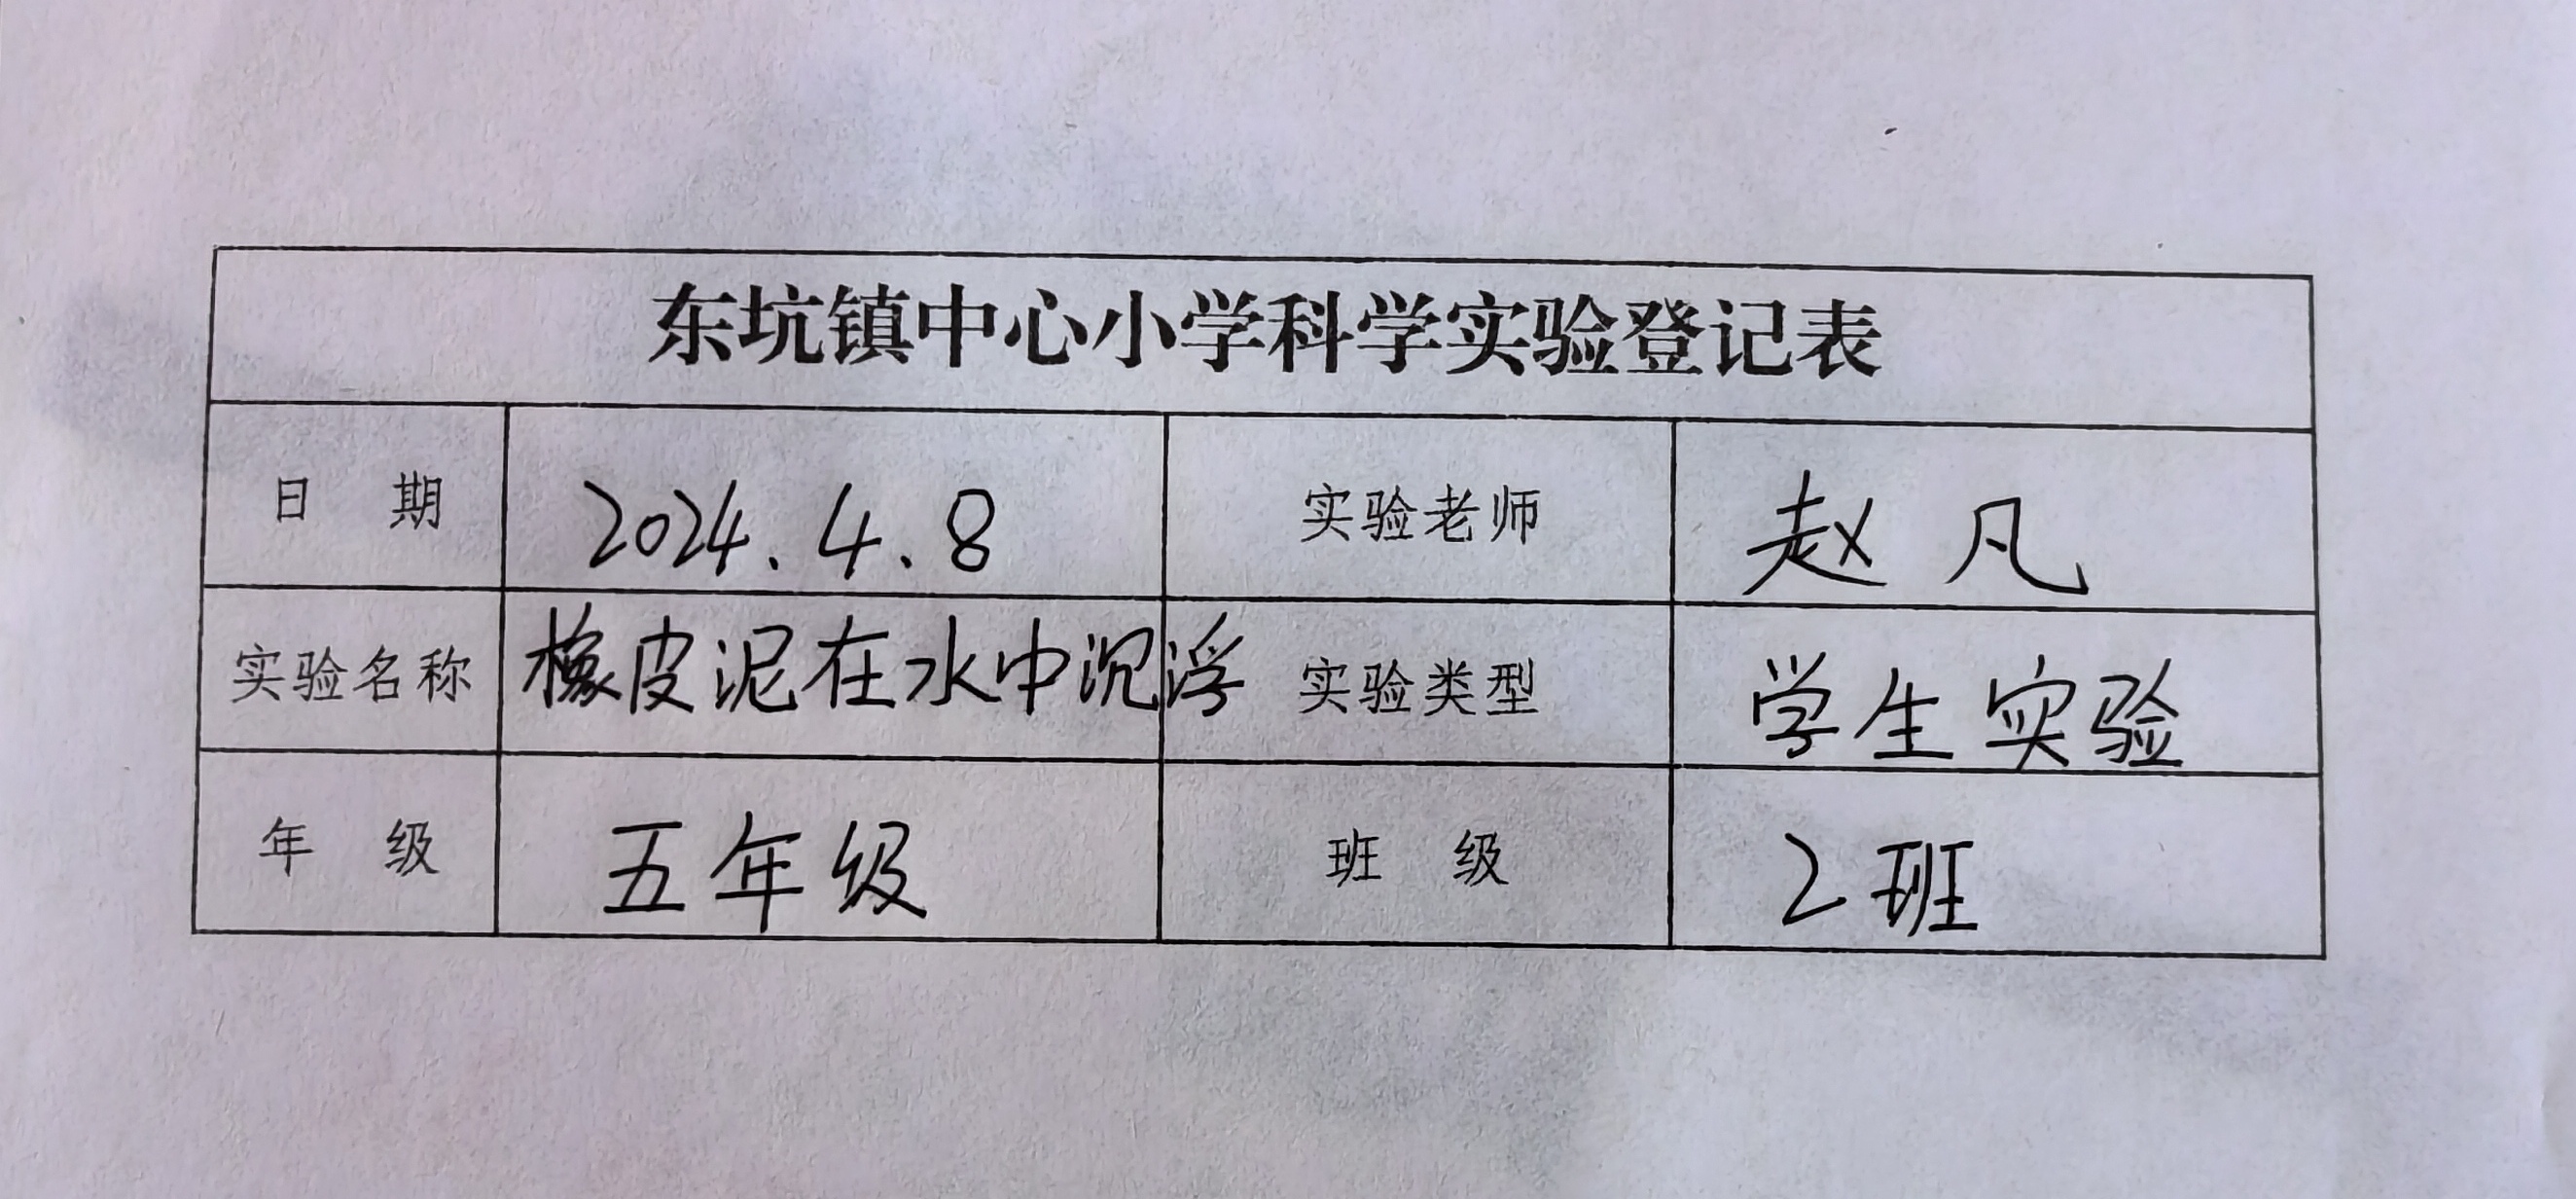 东坑镇中心小学科学实验登记表
日 期 2024.4.8 实验老师 赵凡
实验名称 橡皮泥在水中沉浮 实验类型 学生实验
年 级 五年级 班 级 2班